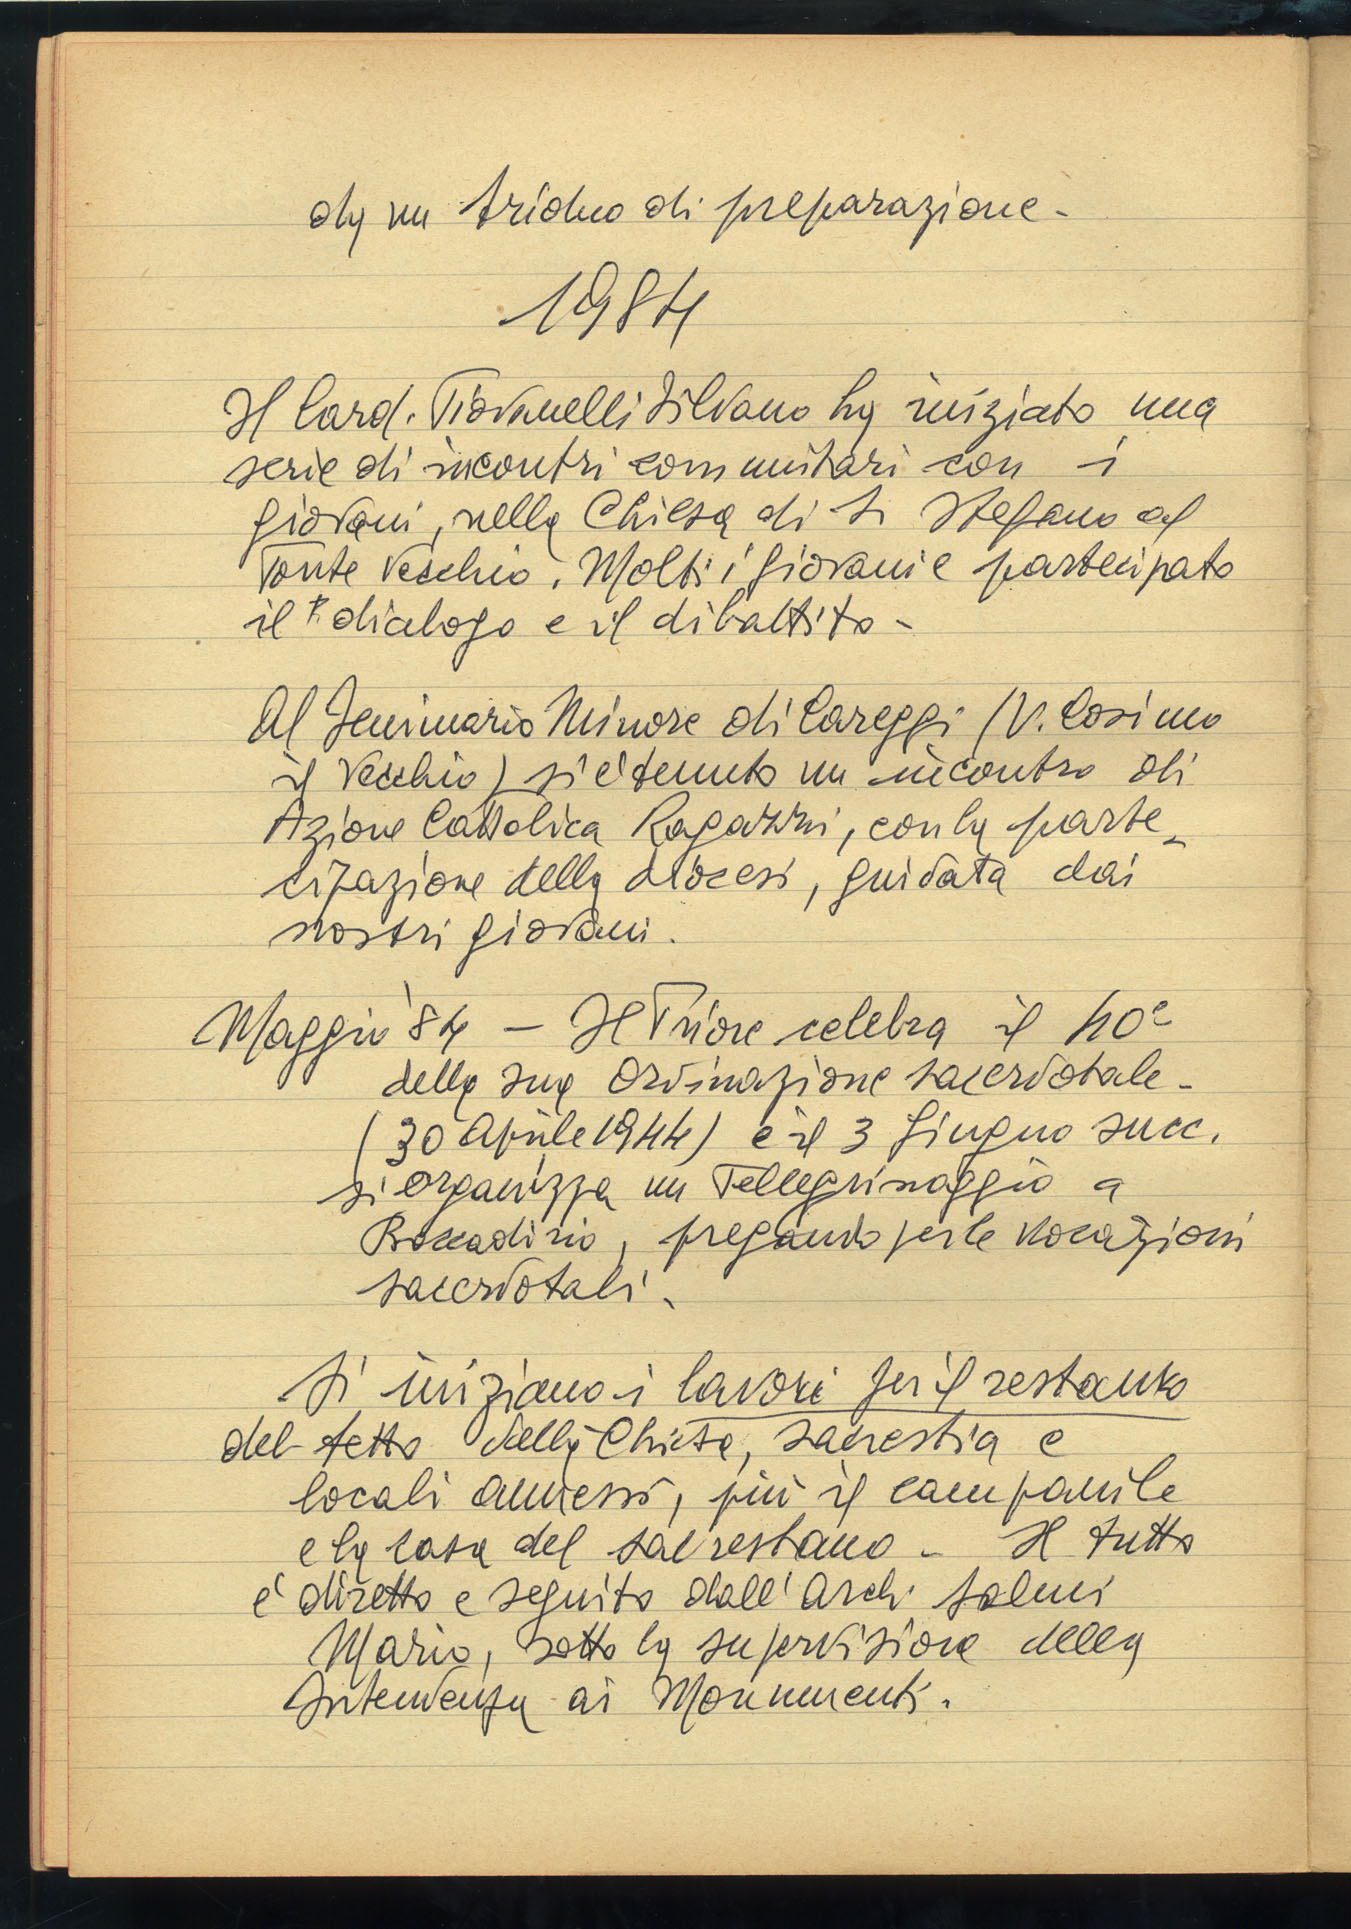 da un triduo di preparazione -
1984
Il Card. Piovanelli Silvano ha iniziato una
serie di incontri comunitari con i
giovani, nella Chiesa di S. Stefano al
Ponte Vecchio. Molti i giovani e partecipato
il dialogo e il dibattito -
Al Seminario Minore di Careggi (V. Cosimo
il Vecchio) si è tenuto un incontro di
Azione Cattolica Ragazzi, con la parte-
cipazione della diocesi, guidata dai
nostri giovani.
Maggio '84 - Il Priore celebra il 40°
della sua Ordinazione sacerdotale -
(30 Aprile 1944) e il 3 Giugno succ.
si organizza un Pellegrinaggio a
Boccadirio, pregando per le vocazioni
sacerdotali.
Si iniziano i lavori per il restauro
del tetto della Chiesa, sacrestia e
locali annessi, più il campanile
e la casa del sacrestano - Il tutto
è diretto e seguito dall'Arch. Salmi
Mario, sotto la supervisione della
Intendenza ai Monumenti.